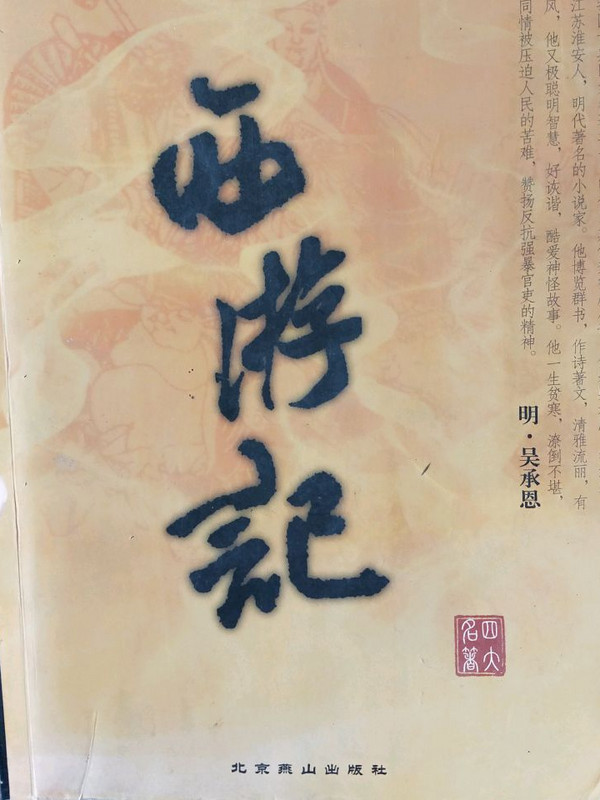 西游記
江苏淮安人，明代著名的小说家。他博览群书，作诗著文，清雅流丽，有
风，他又极聪明智慧，好诙谐，酷爱神怪故事。他一生贫寒，潦倒不堪，
同情被压迫人民的苦难，赞扬反抗强暴官吏的精神。
明·吴承恩
四大
名著
北京燕山出版社